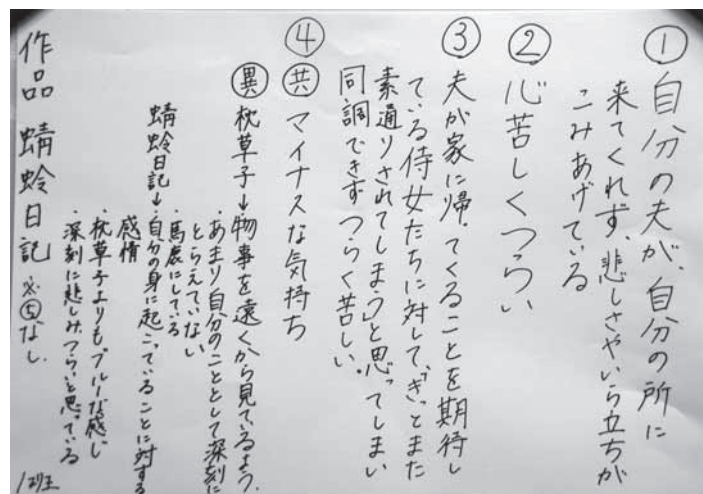 ① 自分の夫が、自分の所に
来てくれず、悲しさやいら立ちが
こみあげている
② 心苦しくつらい
③ 夫が家に帰ってくることを期待し
ている侍女たちに対して、“きっとまた
素通りされてしまう”と思ってしまい
同調できずつらく苦しい。
④ 共 マイナスな気持ち
異 枕草子→物事を遠くから見ているよう。
・あまり自分のこととして深刻に
とらえていない
・馬鹿にしている
蜻蛉日記→・自分の身に起こっていることに対する
感情
・枕草子よりもブルーな感じ
・深刻に悲しみつらいと思っている
作品 蜻蛉日記 ※⑤なし
1班